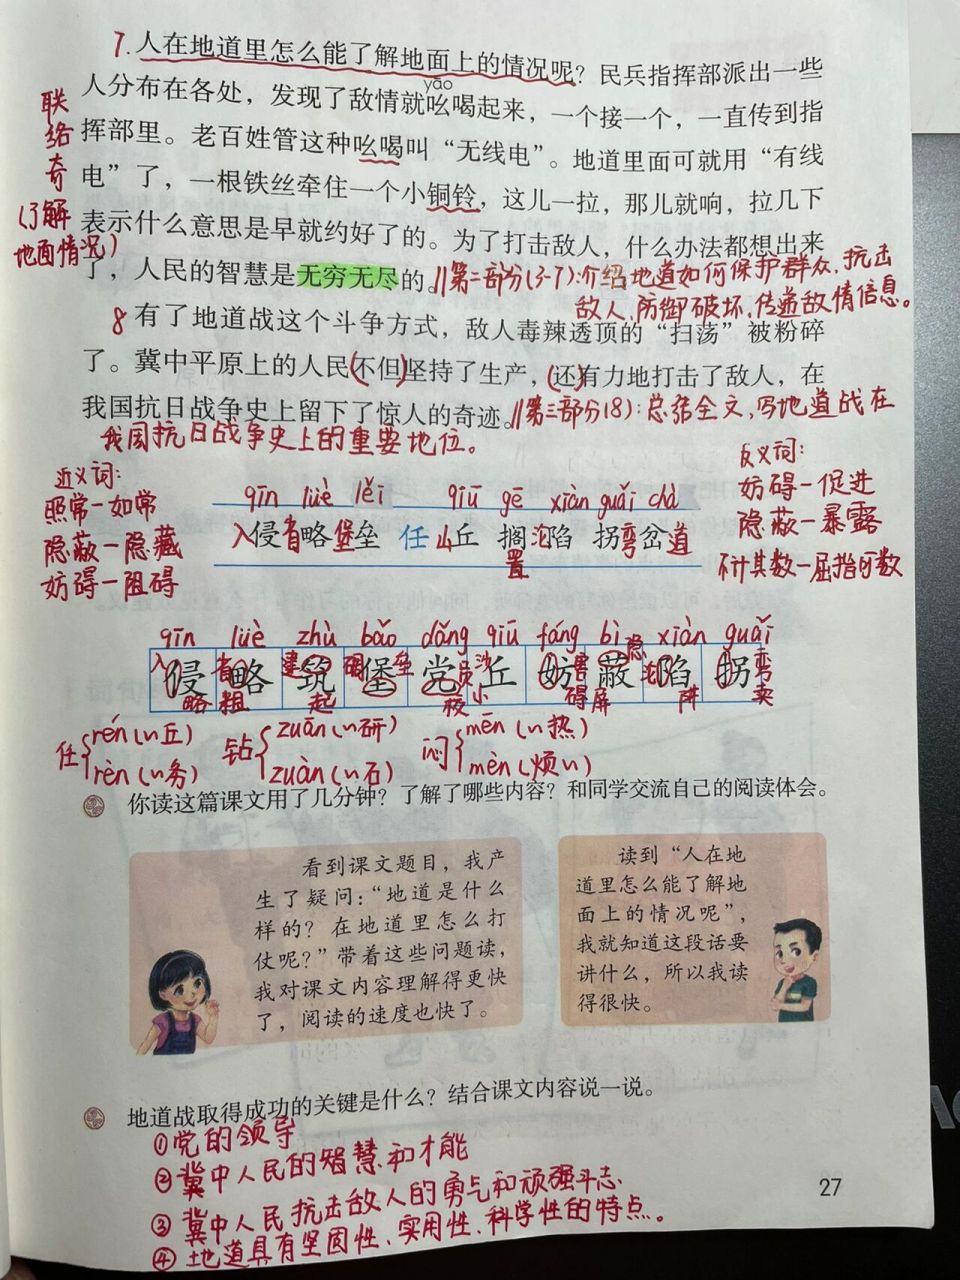 7.人在地道里怎么能了解地面上的情况呢？民兵指挥部派出一些
人分布在各处，发现了敌情就吆喝起来，一个接一个，一直传到指
yāo
挥部里。老百姓管这种吆喝叫“无线电”。地道里面可就用“有线
电”了，一根铁丝牵住一个小铜铃，这儿一拉，那儿就响，拉几下
表示什么意思是早就约好了的。为了打击敌人，什么办法都想出来
了，人民的智慧是无穷无尽的。
联络奇
(了解
地面情况)
∥第二部分(3-7):介绍地道如何保护群众、抗击
敌人、防御破坏、传递敌情信息。
8 有了地道战这个斗争方式，敌人毒辣透顶的“扫荡”被粉碎
了。冀中平原上的人民(不但)坚持了生产，(还)有力地打击了敌人，在
我国抗日战争史上留下了惊人的奇迹。
∥第三部分(8):总结全文,写地道战在
我国抗日战争史上的重要地位。
近义词:
照常一如常
隐蔽一隐藏
妨碍一阻碍
qīn lüè lěi qiū gē xiàn guǎi chà
入侵省略堡垒 任山丘 搁沉陷 拐弯岔道
置
反义词:
妨碍一促进
隐蔽一暴露
不计其数一屈指可数
qīn lüè zhù bǎo dǎng qiū fáng bì xiàn guǎi
入侵 省略 建筑 碉堡垒 党员 沙丘 妨害 隐蔽 沉陷 拐弯
略 粗 起 校 小 碍 屏 阱 卖
任 rén (~丘) 钻 zuān (~研) 闷 mēn (~热)
rèn (~务) zuàn (~石) mèn (烦~)
你读这篇课文用了几分钟？了解了哪些内容？和同学交流自己的阅读体会。
看到课文题目，我产
生了疑问：“地道是什么
样的？在地道里怎么打
仗呢？”带着这些问题读，
我对课文内容理解得更快
了，阅读的速度也快了。
读到“人在地
道里怎么能了解地
面上的情况呢”，
我就知道这段话要
讲什么，所以我读
得很快。
地道战取得成功的关键是什么？结合课文内容说一说。
①党的领导
②冀中人民的智慧和才能
③冀中人民抗击敌人的勇气和顽强斗志.
④地道具有坚固性、实用性、科学性的特点。
27